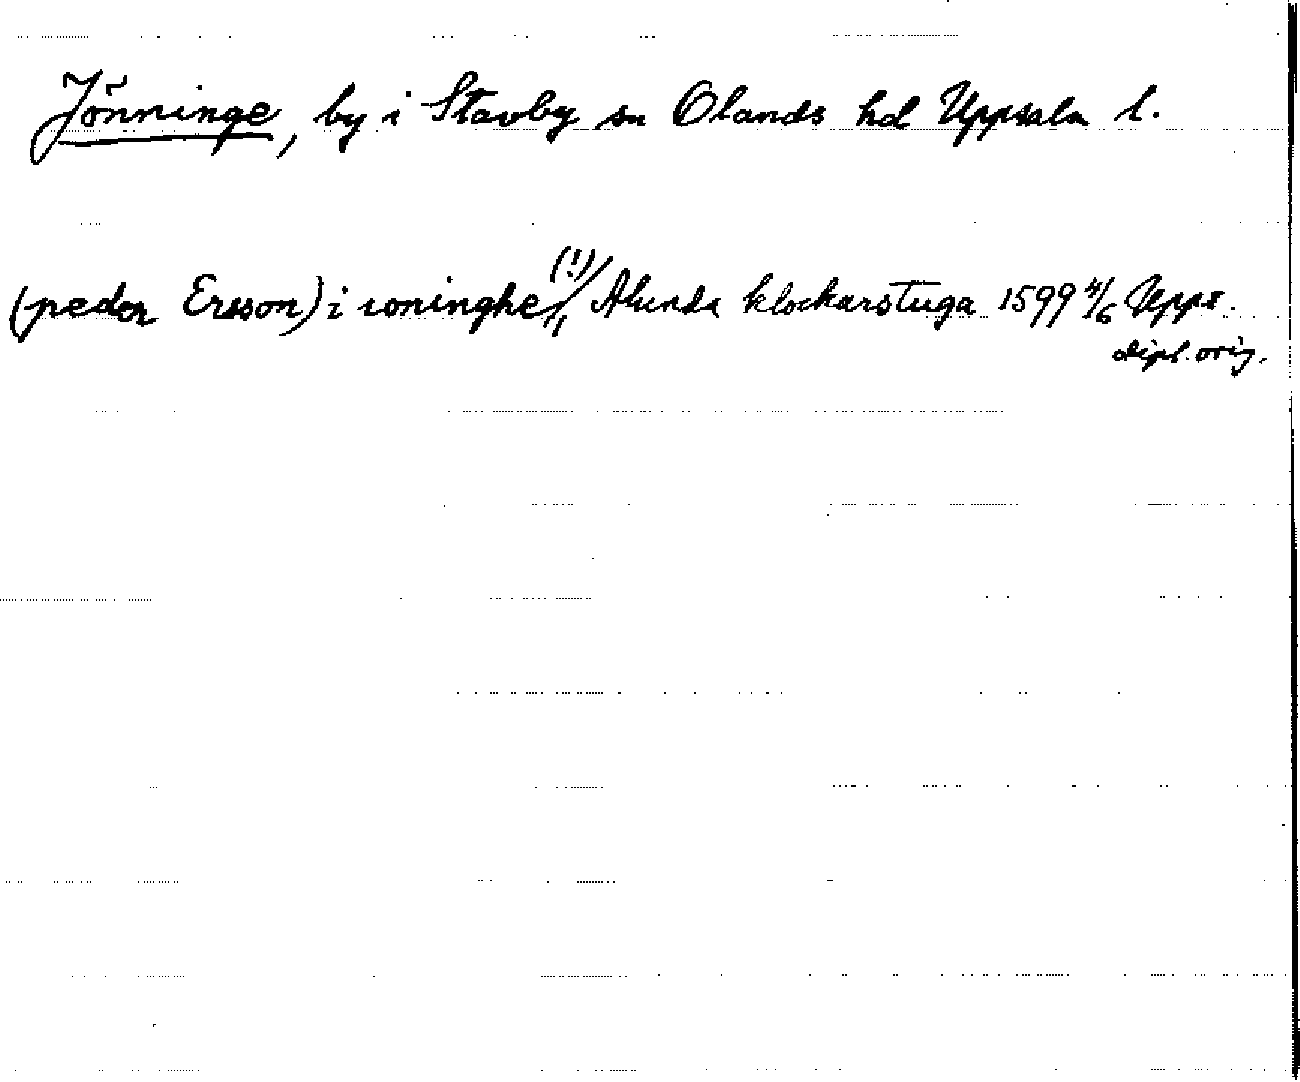 Jönninge, by i Stavby sn Olands hd Uppsala l.
(peder Ersson) i ioninghe (!) // Alunda klockarstuga 1599 4/6 Upps.
dipl. orig.